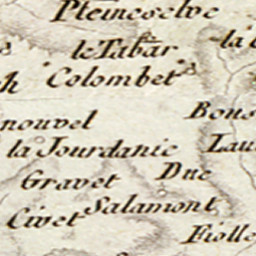 Pleineselve
le Tabar
la
Colombet
h
Bous
nouvel
la Jourdanie
Lau
Gravet
Duc
Salamont
Civet
Fiolle